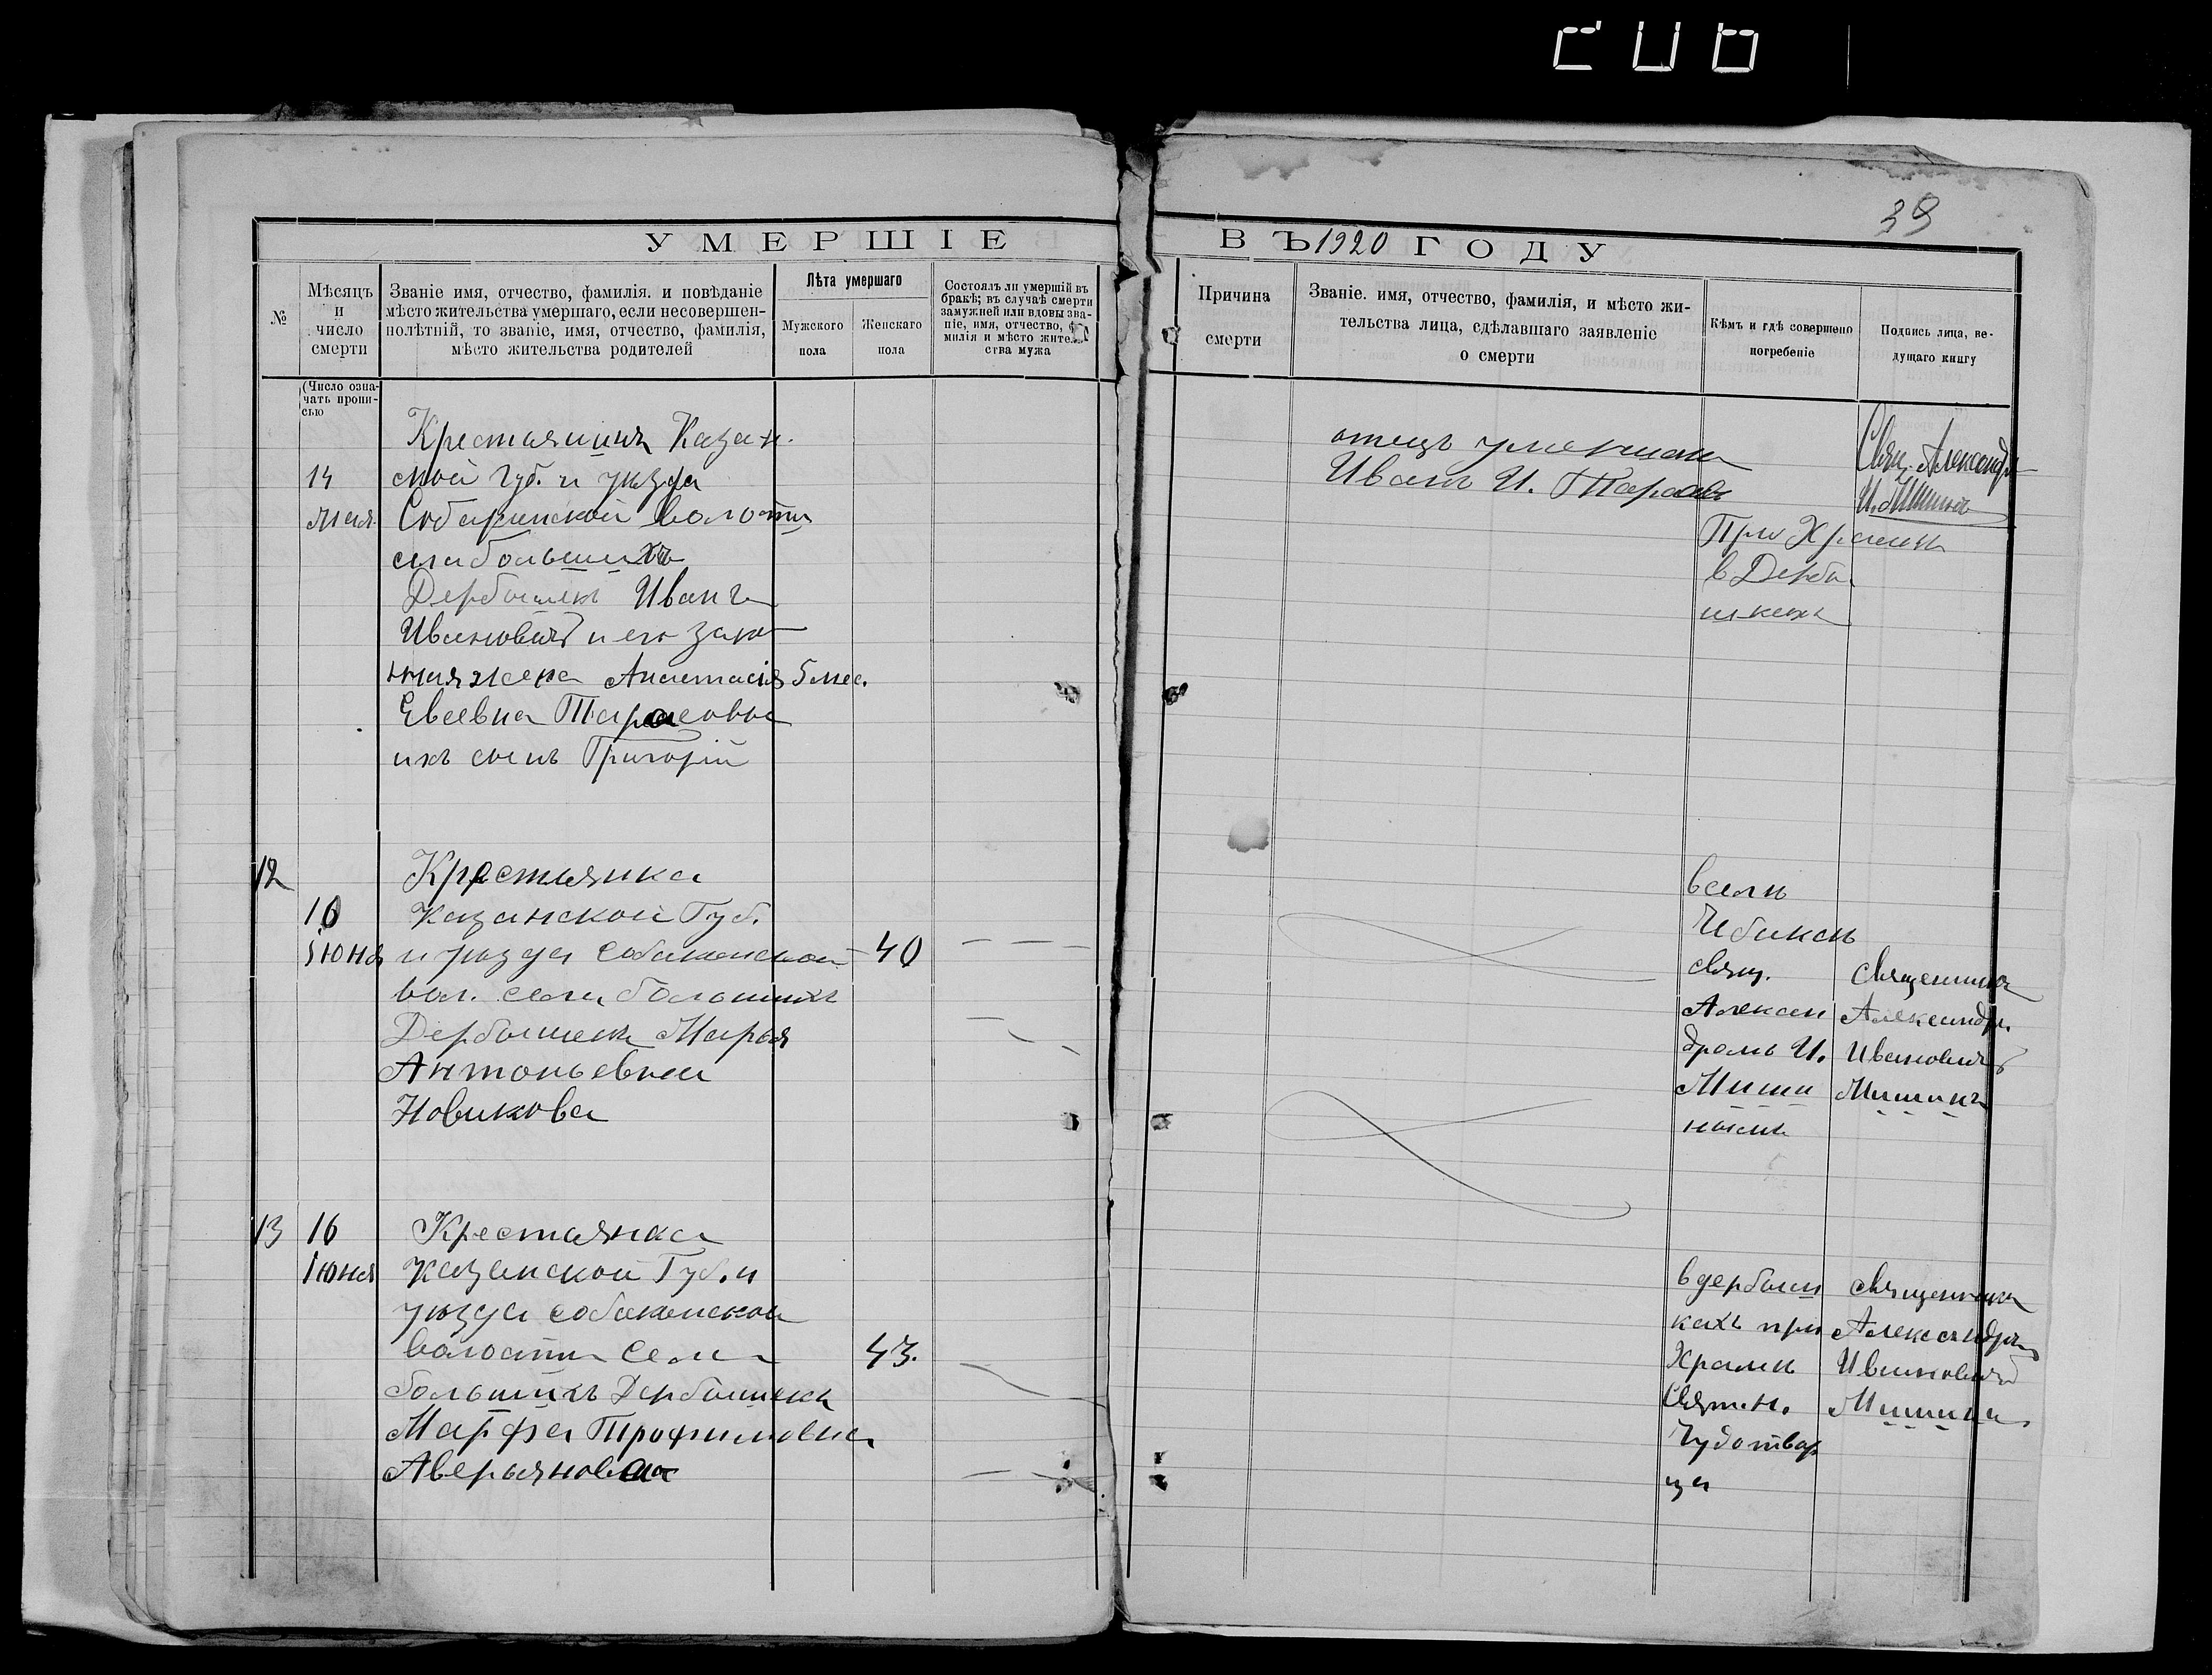 39
УМЕРШІЕ ВЪ 1920 ГОДУ
№
Мѣсяцъ и число смерти
Званіе имя, отчество, фамилія. и повѣданіе мѣсто жительства умершаго, если несовершен-нолѣтній, то званіе, имя, отчество, фамилія, мѣсто жительства родителей
Лѣта умершаго
Мужского пола
Женскаго пола
Состоялъ ли умершій въ бракѣ; въ случаѣ смерти замужней или вдовы зва-ніе, имя, отчество, милія и мѣсто житель ства мужа
Причина смерти
Званіе. имя, отчество, фамилія, и мѣсто жи-тельства лица, сдѣлавшаго заявленіе о смерти
Кѣмъ и гдѣ совершено погребеніе
Подпись лица, ве-дущаго книгу
(Число озна-чать пропи-сью
14
мая
Крестьянинъ Казан.
ской губ. и уѣзда
волости
села большихъ
Дербышекъ Иванъ
Ивановичъ и его зако
нная жена Анастасія
Евсевна Тарасовы
ихъ сынъ Григорій
5 мес.
отецъ умершаго
Иванъ И. Тарасовъ
При Храмѣ
в Дербы
шкахъ
Свящ. Александръ
И. Мишинъ
12
10
Июня
Крестьянка
Казанской Губ.
и уѣзда собакинской
вол. села большихъ
Дербышекъ Марья
Антоньевна
Новикова
40
в селѣ
Чебаксѣ
свящ.
Алексан
дромъ И.
Миши
нымъ
Священникъ
Александръ
Ивановичъ
Мишинъ
13
16
Июня
Крестьянка
Казанской Губ. и
уѣзда собакинской
волости села
большихъ Дербышекъ
Марфа Трофимовна
Аверьянова
43.
в дербыш
кахъ при
Храмѣ
Свят. Н.
Чудотвор
ца
Священникъ
Александръ
Ивановичъ
Мишинъ